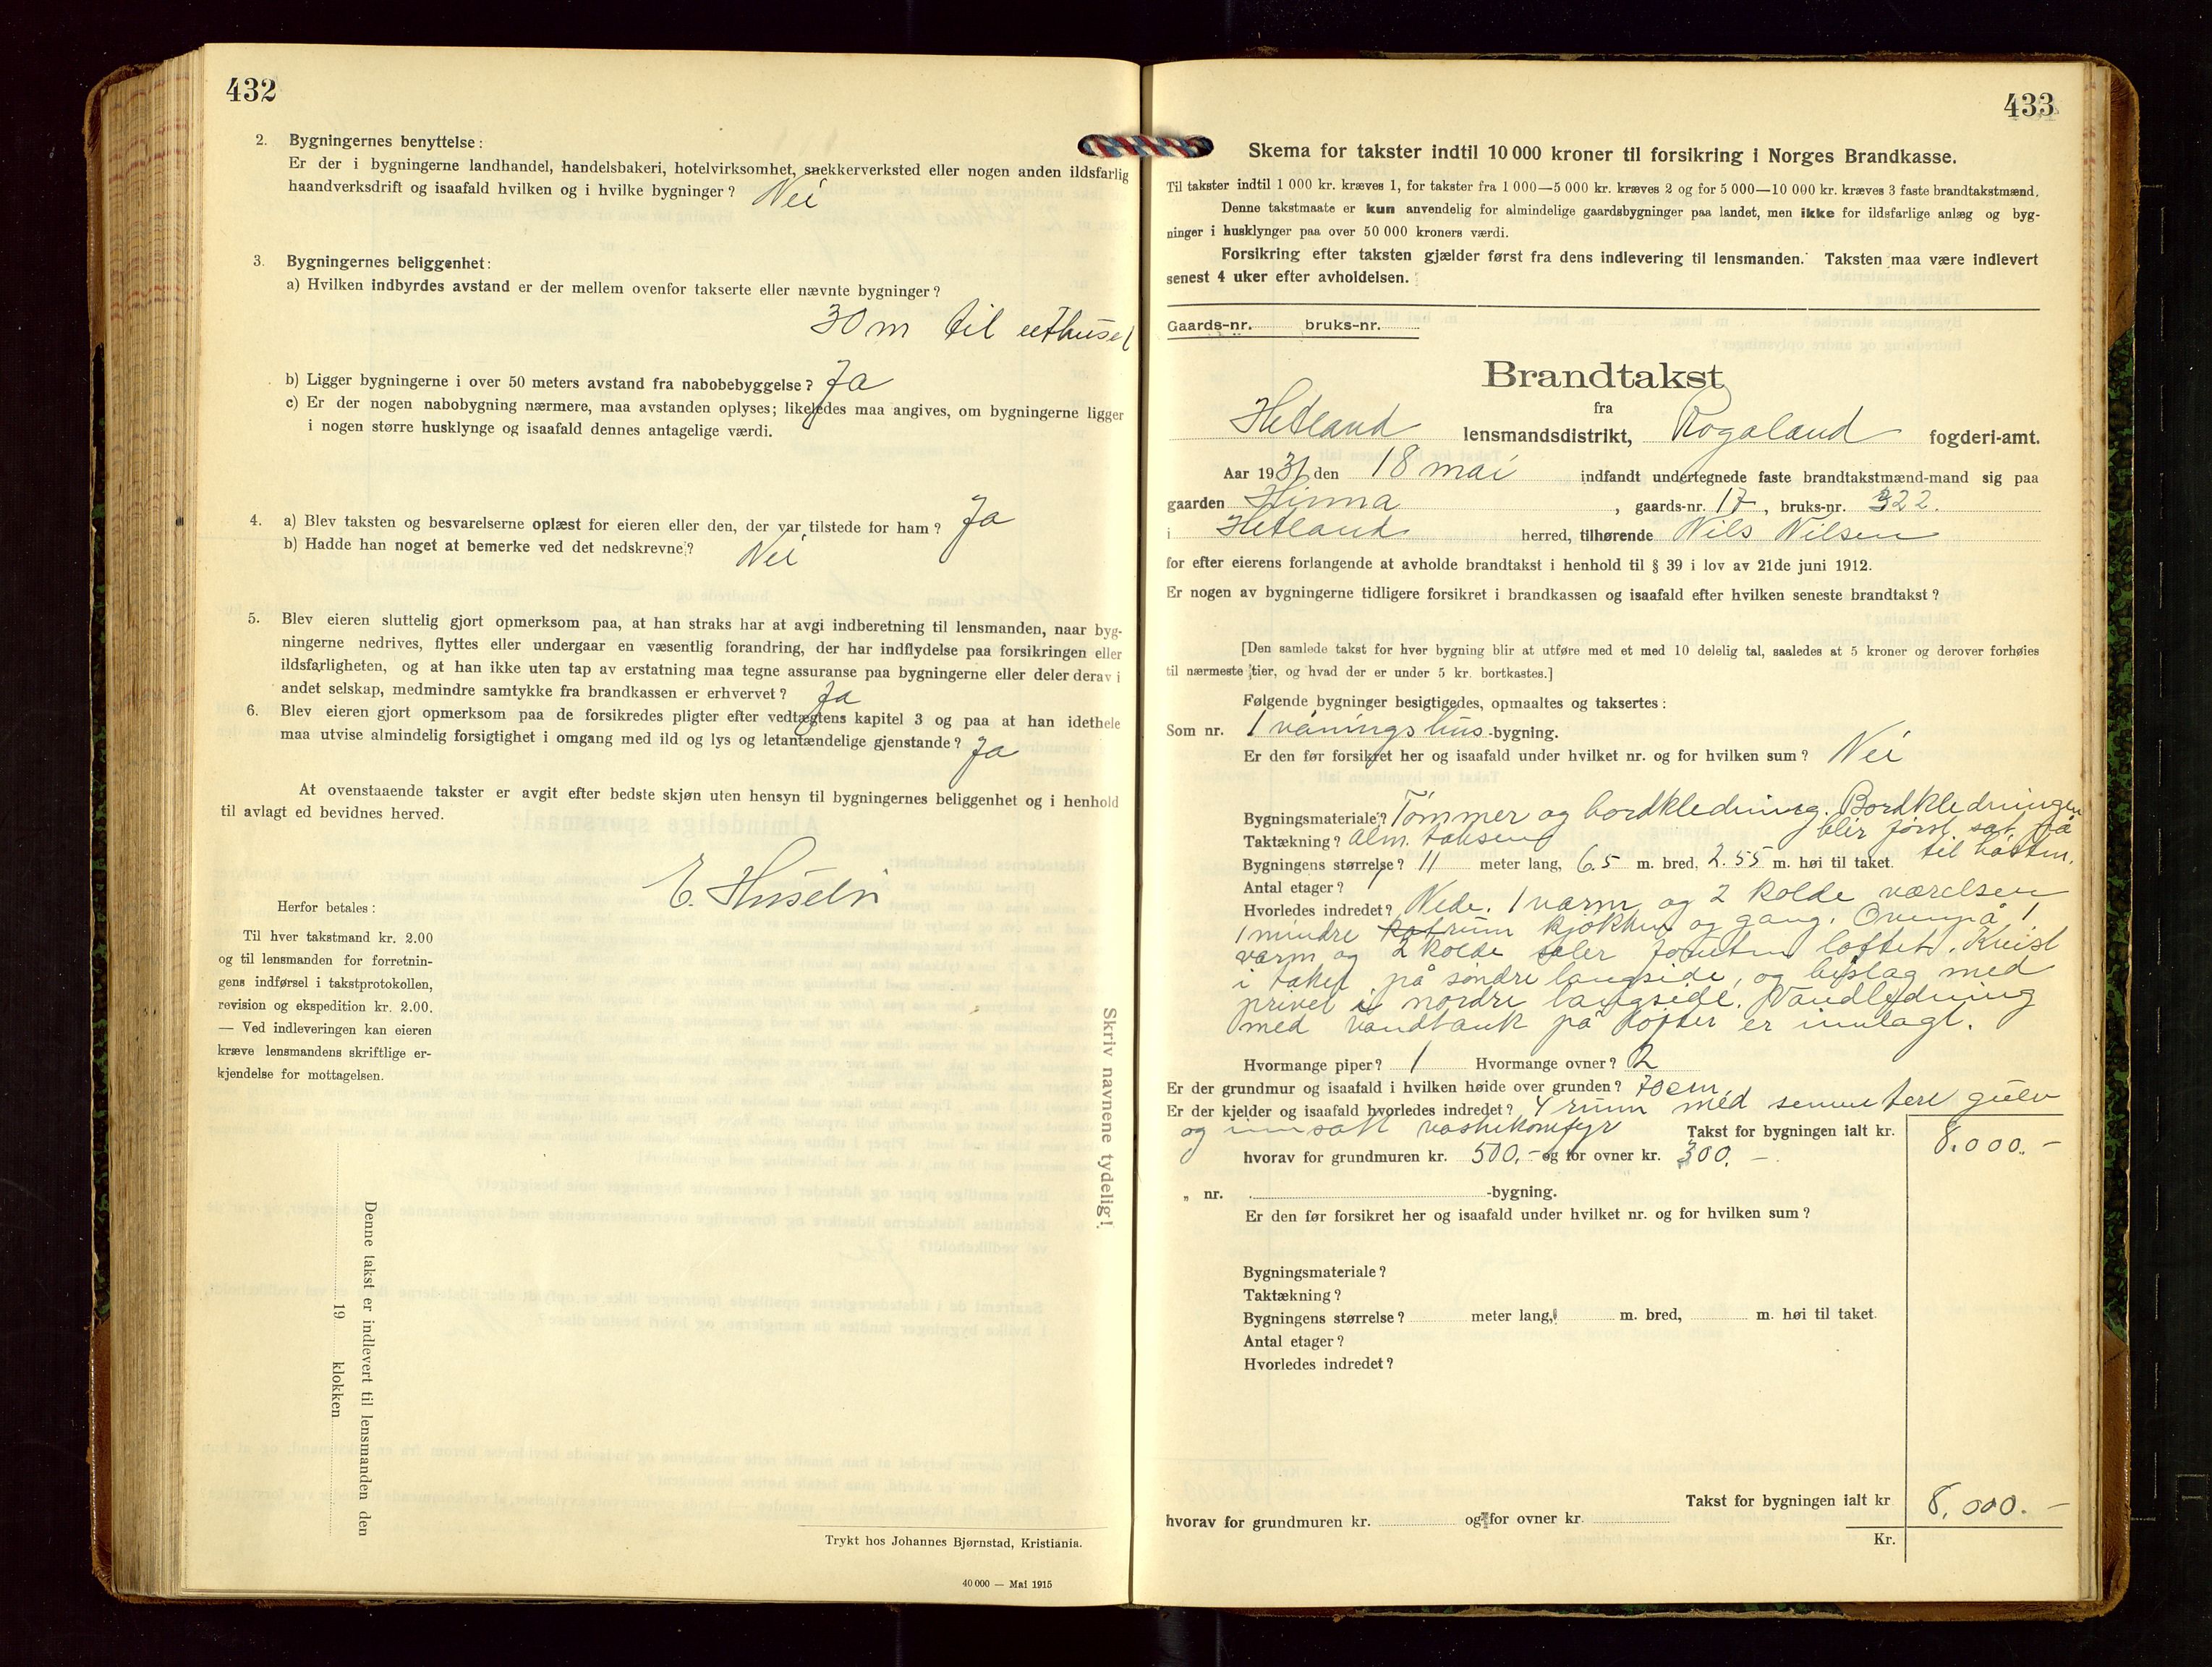 432
2. Bygningernes benyttelse:
Er der i bygningerne landhandel, handelsbakeri, hotelvirksomhet, snekkerverksted eller nogen anden ildsfarlig
haandverksdrift og isaafald hvilken og i hvilke bygninger? Nei
3. Bygningernes beliggenhet:
a) Hvilken indbyrdes avstand er der mellem ovenfor takserte eller nævnte bygninger?
30 m til uthuset
b) Ligger bygningerne i over 50 meters avstand fra nabobebyggelse? Ja
c) Er der nogen nabobygning nærmere, maa avstanden oplyses; likeledes maa angives, om bygningerne ligger
i nogen større husklynge og isaafald dennes antagelige værdi.
4. a) Blev taksten og besvarelserne oplæst for eieren eller den, der var tilstede for ham? Ja
b) Hadde han noget at bemerke ved det nedskrevne? Nei
5. Blev eieren sluttelig gjort opmerksom paa, at han straks har at avgi indberetning til lensmanden, naar byg-
ningerne nedrives, flyttes eller undergaar en væsentlig forandring, der har indflydelse paa forsikringen eller
ildsfarligheten, og at han ikke uten tap av erstatning maa tegne assuranse paa bygningerne eller deler derav i
andet selskap, medmindre samtykke fra brandkassen er erhvervet? Ja
6. Blev eieren gjort opmerksom paa de forsikredes pligter efter vedtægtens kapitel 3 og paa at han idethele
maa utvise almindelig forsigtighet i omgang med ild og lys og letantændelige gjenstande? Ja
At ovenstaaende takster er avgit efter bedste skjøn uten hensyn til bygningernes beliggenhet og i henhold
til avlagt ed bevidnes herved.
Herfor betales:
Til hver takstmand kr. 2.00
og til lensmanden for forretnin-
gens indførsel i takstprotokollen,
revision og ekspedition kr. 2.00.
— Ved indleveringen kan eieren
kræve lensmandens skriftlige er-
kjendelse for mottagelsen.
Skriv navnene tydelig!
Denne takst er indlevert til lensmanden den
19 klokken
Trykt hos Johannes Bjørnstad, Kristiania.
40 000 — Mai 1915
433
Skema for takster indtil 10 000 kroner til forsikring i Norges Brandkasse.
Til takster indtil 1 000 kr. kræves 1, for takster fra 1 000—5 000 kr. kræves 2 og for 5 000—10 000 kr. kræves 3 faste brandtakstmænd.
Denne takstmaate er kun anvendelig for almindelige gaardsbygninger paa landet, men ikke for ildsfarlige anlæg og byg-
ninger i husklynger paa over 50 000 kroners værdi.
Forsikring efter taksten gjælder først fra dens indlevering til lensmanden. Taksten maa være indlevert
senest 4 uker efter avholdelsen.
Gaards-nr. bruks-nr.
Brandtakst
fra
Hetland lensmandsdistrikt, Rogaland fogderi-amt.
Aar 1931 den 18 mai indfandt undertegnede faste brandtakstmænd-mand sig paa
gaarden Hinna, gaards-nr. 17, bruks-nr. 322.
i Hetland herred, tilhørende Nils Nilsen
for efter eierens forlangende at avholde brandtakst i henhold til § 39 i lov av 21de juni 1912.
Er nogen av bygningerne tidligere forsikret i brandkassen og isaafald efter hvilken seneste brandtakst?
[Den samlede takst for hver bygning blir at utføre med et med 10 delelig tal, saaledes at 5 kroner og derover forhøies
til nærmeste tier, og hvad der er under 5 kr. bortkastes.]
Følgende bygninger besigtigedes, opmaaltes og taksertes:
Som nr. 1 våningshus-bygning.
Er den før forsikret her og isaafald under hvilket nr. og for hvilken sum? Nei
Bygningsmateriale? Tømmer og bordkledning. Bordkledningen
blir først sat på
Taktækning? alm. taksten
til høsten.
Bygningens størrelse? 11 meter lang, 6.5 m. bred, 2.55 m. høi til taket.
Antal etager? 1
Hvorledes indredet? Nede. 1 varm og 2 kolde værelsen
1 mindre rum kjøkken og gang. Ovenpå 1
varm og 2 kolde foruten loftet. Kvist
i taket på søndre langside, og bislag med
privet i nordre langside. Vandledning
med vandtank på loftet er innlagt.
Hvormange piper? 1 Hvormange ovner? 2
Er der grundmur og isaafald i hvilken høide over grunden? 70 cm.
Er der kjelder og isaafald hvorledes indredet? 4 rum med sementert gulv
og innsatt vaskekomfyr Takst for bygningen ialt kr. 8.000.-
hvorav for grundmuren kr. 500,- og for ovner kr. 300.-
„ nr. -bygning.
Er den før forsikret her og isaafald under hvilket nr. og for hvilken sum?
Bygningsmateriale?
Taktækning?
Bygningens størrelse? meter lang, m. bred, m. høi til taket.
Antal etager?
Hvorledes indredet?
Takst for bygningen ialt kr 8.000.-
hvorav for grundmuren kr. og for ovner kr.
Kr.